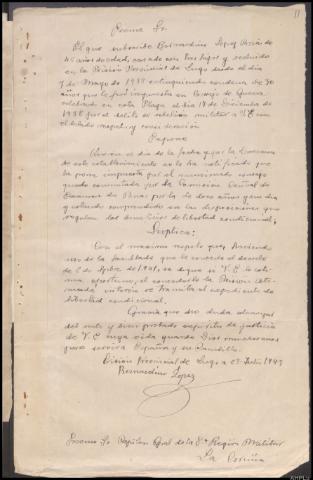 11
Excmo Sr.
El que suscribe Bernardino Lopez
45 años de edad, casado con tres hijos y recluido
en la Prision Provincial de Lugo desde el dia
7 de Mayo de 1938 extinguiendo condena de 30
años que le fué impuesta en Consejo de Guerra
celebrado en esta Plaza el dia 17 de Diciembre de
1938 por el delito de rebelion militar a V.E con
el debido respeto y consideración
Expone
de la fecha que la Direccion
de este establecimiento se le ha notificado que
la pena impuesta por el mencionado consejo
quedó conmutada por la Comision Central de
Examen de Penas por la de doce años y un dia
y estando comprendido en las disposiciones que
regulan los beneficios de libertad condicional;
Suplica:
Con el maximo respeto que, haciendo
uso de la facultad que le concede el decreto
de de Abril de 1941, se digne si V.E lo estima
oportuno, el concederle la Prision
mientras se tramita el expediente de
libertad condicional.
Gracia que no duda alcanzar
del recto y bien probado espiritu de justicia
de V.E cuya vida guarde Dios muchos años
para servicio España y su Caudillo.
Prision Provincial de Lugo a 23 Julio 1943
Bernardino Lopez
Excmo Sr. Capitan Gral de la 8ª Region Militar
La Coruña